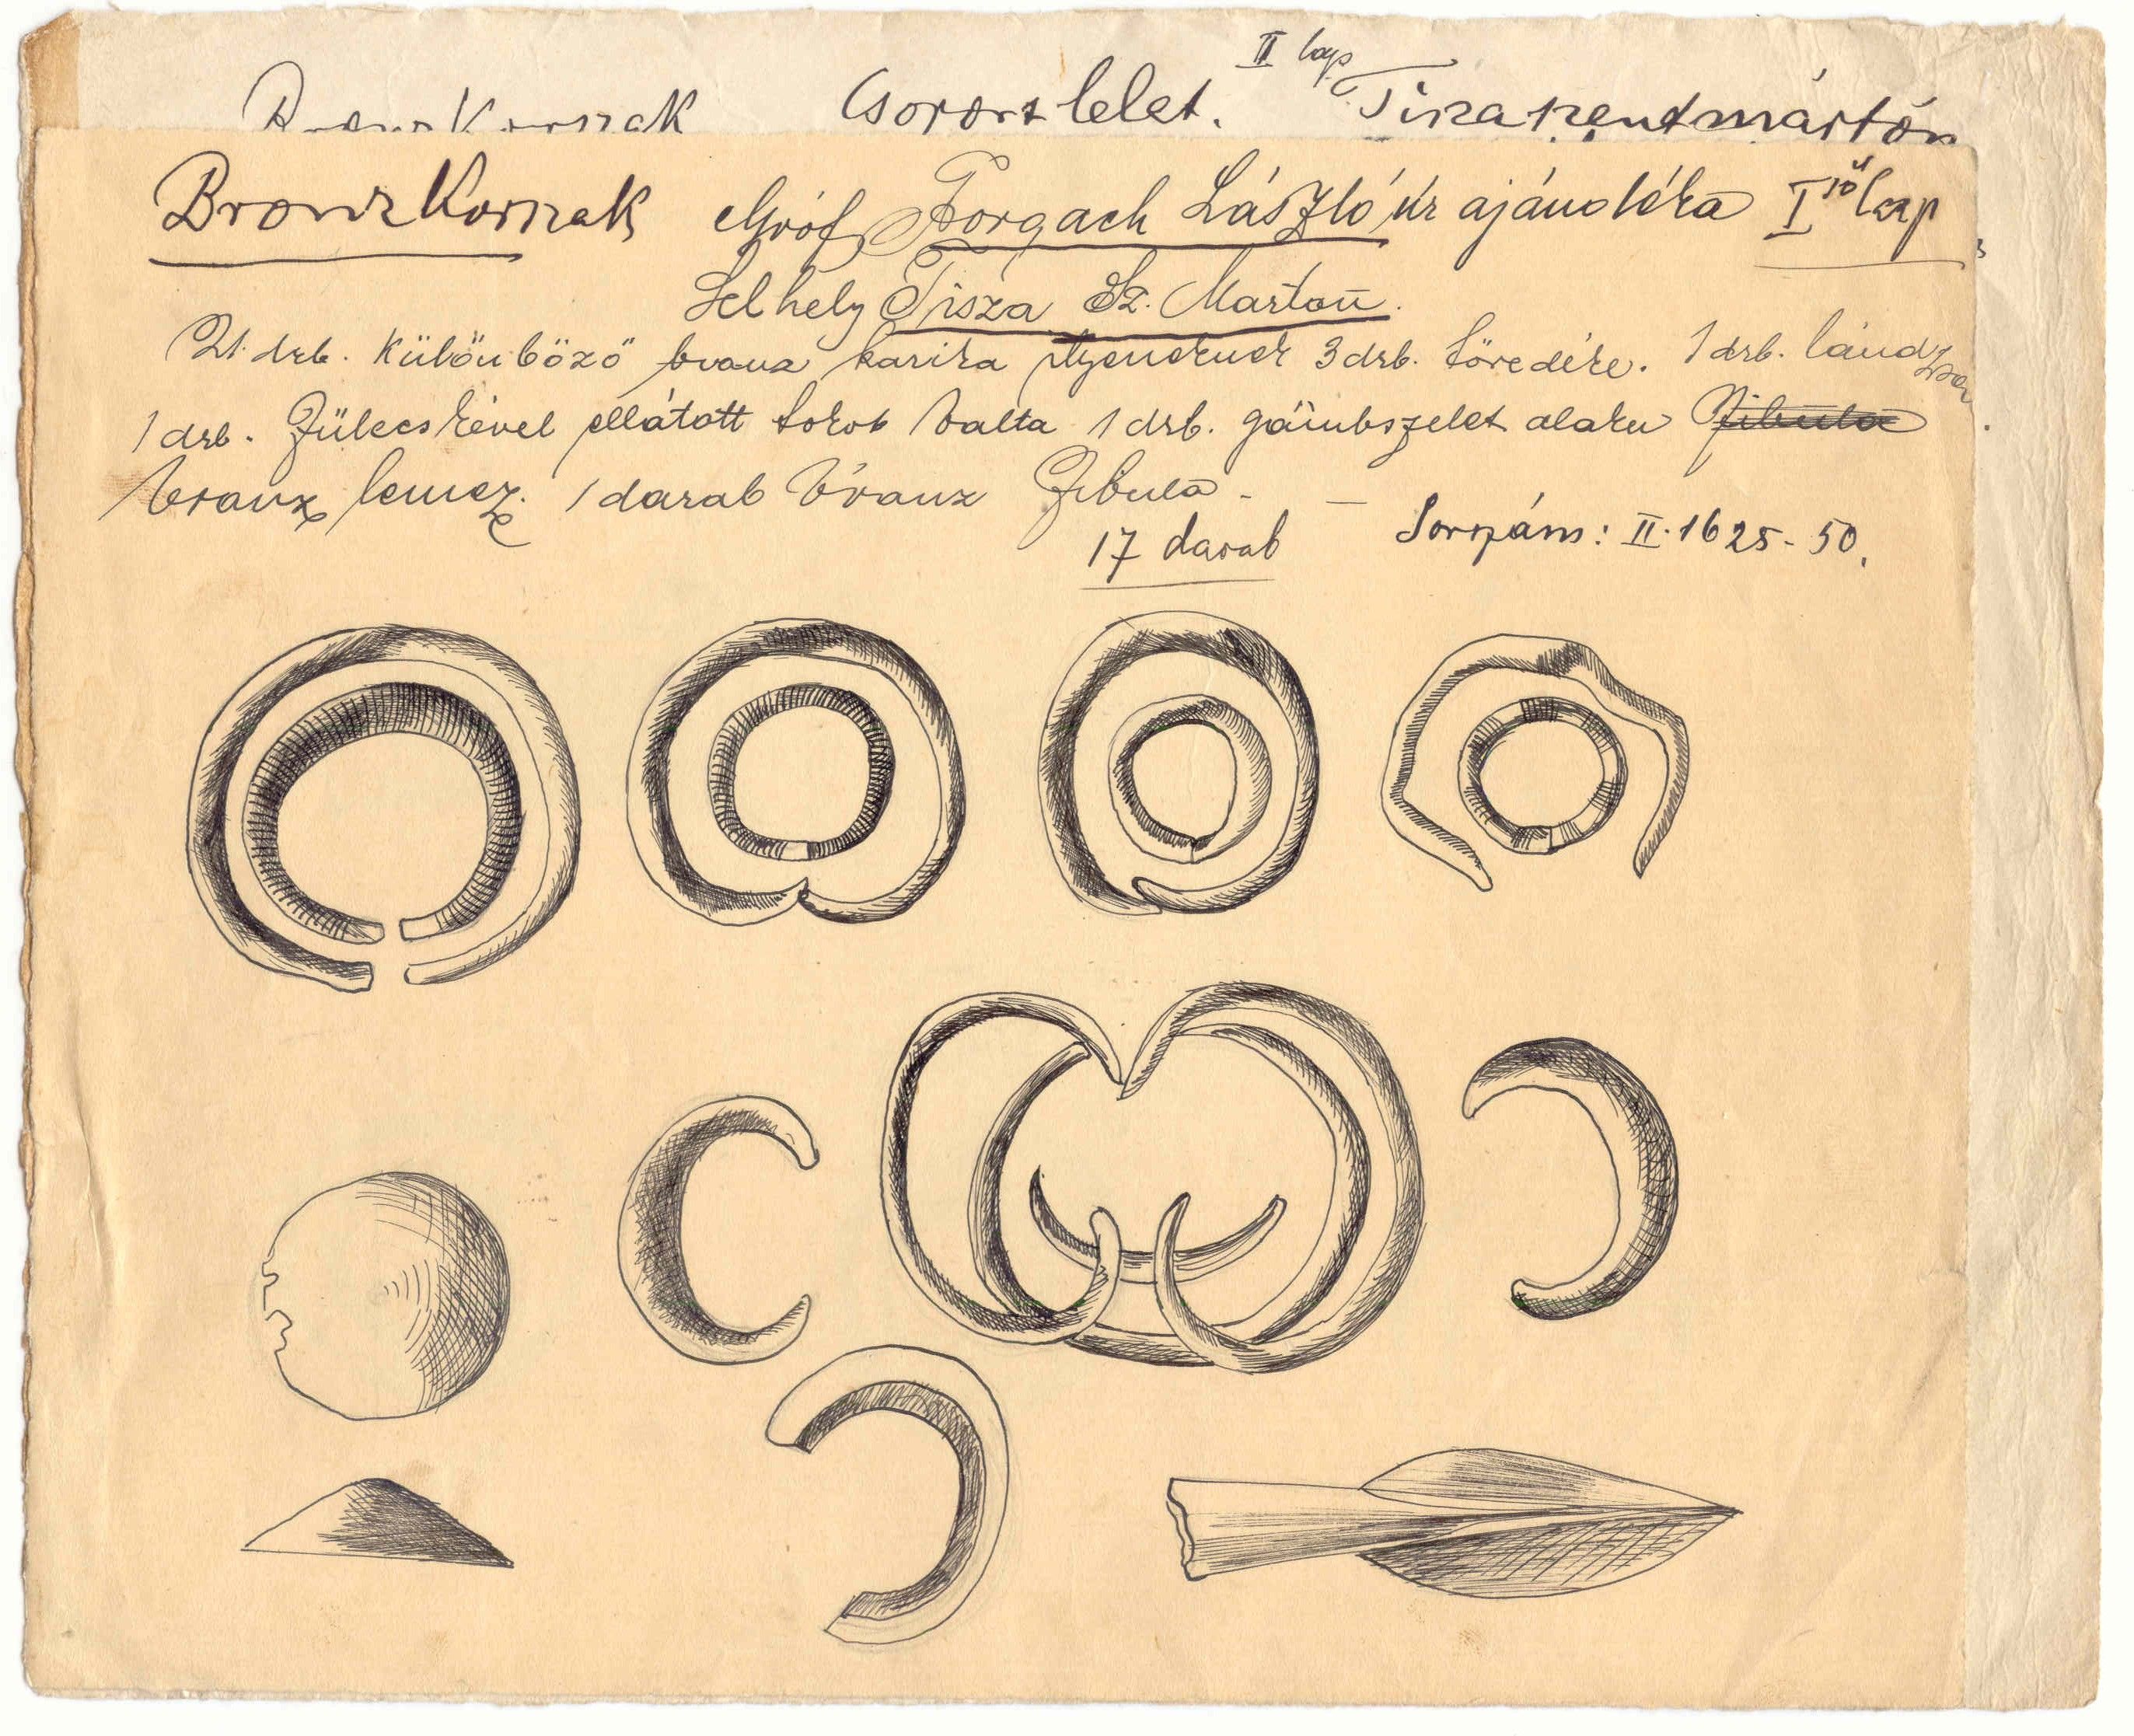 II lap
Bronzkorszak Csoportlelet. Tiszaszentmárton
Bronzkorszak Gróf Forgach László úr ajándéka I ső lap
Lelhely Tisza Sz. Marton.
21 drb. különböző bronz karika 3 drb. töredéke. 1 drb. lándzsa
1 drb. fülecskével ellátott tokos balta 1 drb. gömbszelet alaku fibula
bronz lemez. 1 darab bronz Fibula -
17 darab — Sorszám: II. 1625-50.